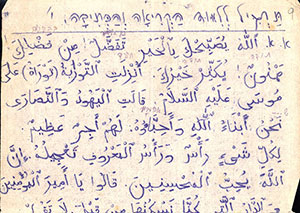 ללמוד הקריאה והכתיבה
اَللّٰه يُصَبِّحُكَ بِالْخَيْرِ تَفَضَّلْ مِنْ فَضْلِكَ
مَمْنُونْ يُكَثِّرْ خَيْرَكْ. اُنْزِلَتِ التَّوْرَيةُ (تَوْرَاة) عَلَى
مُوسَى عَلَيْهِ السَّلَام قَالَتِ الْيَهُودُ وَالنَّصَارَى
نَحْنُ أَبْنَاءُ اللّٰهِ وَأَحِبَّاؤُهُ. لَهُمْ أَجْرٌ عَظِيمٌ.
لِكُلِّ شَيْءٍ رَأْسٌ وَرَأْسُ الْمَعْرُوفِ تَعْجِيلُهُ. إِنَّ
اللّٰهَ يُحِبُّ الْمُحْسِنِينَ. قَالُوا يَا أَمِيرَ الْمُؤْمِنِينَ